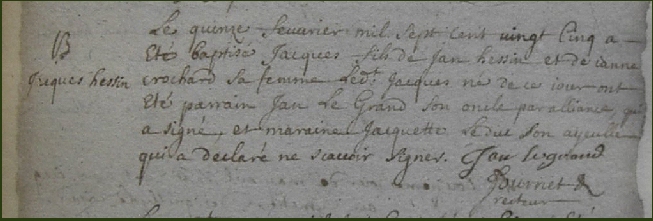 Le quinze feuvrier mil sept cent vingt cinq a
B
Eté baptisé Jacques fils de Jan hessin et de ianne
Jacques hessin
crochard sa femme ledt Jacques né de ce iour ont
Eté parrain Jan Le Grand son oncle par alliance qui
a signé, et maraine Jacquette Leduc son ayeulle
qui a declaré ne scavoir signer. Jan legrand
recteur